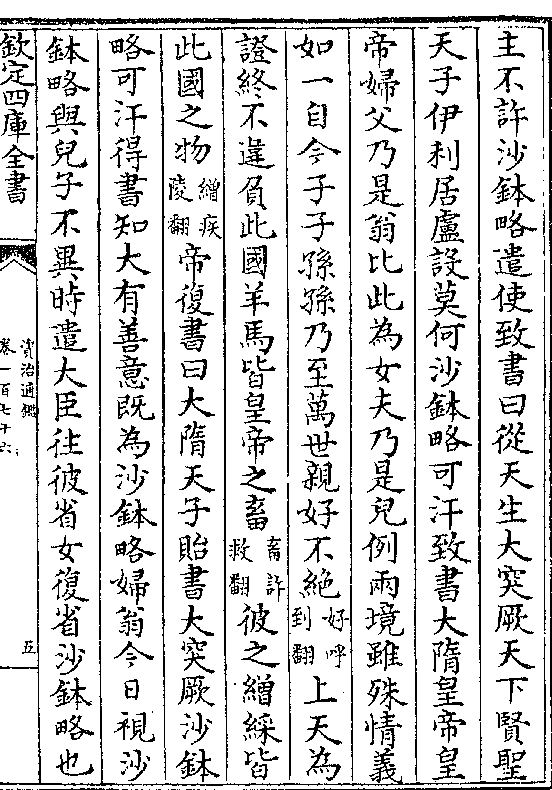 主不許沙鉢略遣使致書曰從天生大突厥天下賢聖
天子伊利居盧設莫何沙鉢略可汗致書大隋皇帝皇
帝婦父乃是翁比此為女夫乃是兒例兩境雖殊情義
如一自今子子孫孫乃至萬世親好不絶好呼到翻上天為
證終不違負此國羊馬皆皇帝之畜畜許救翻彼之繒綵皆
此國之物繒疾陵翻帝復書曰大隋天子貽書大突厥沙鉢
略可汗得書知大有善意既為沙鉢略婦翁今日視沙
鉢略與兒子不異時遣大臣往彼省女復省沙鉢略也
欽定四庫全書
資治通鑑
卷一百七十六
五